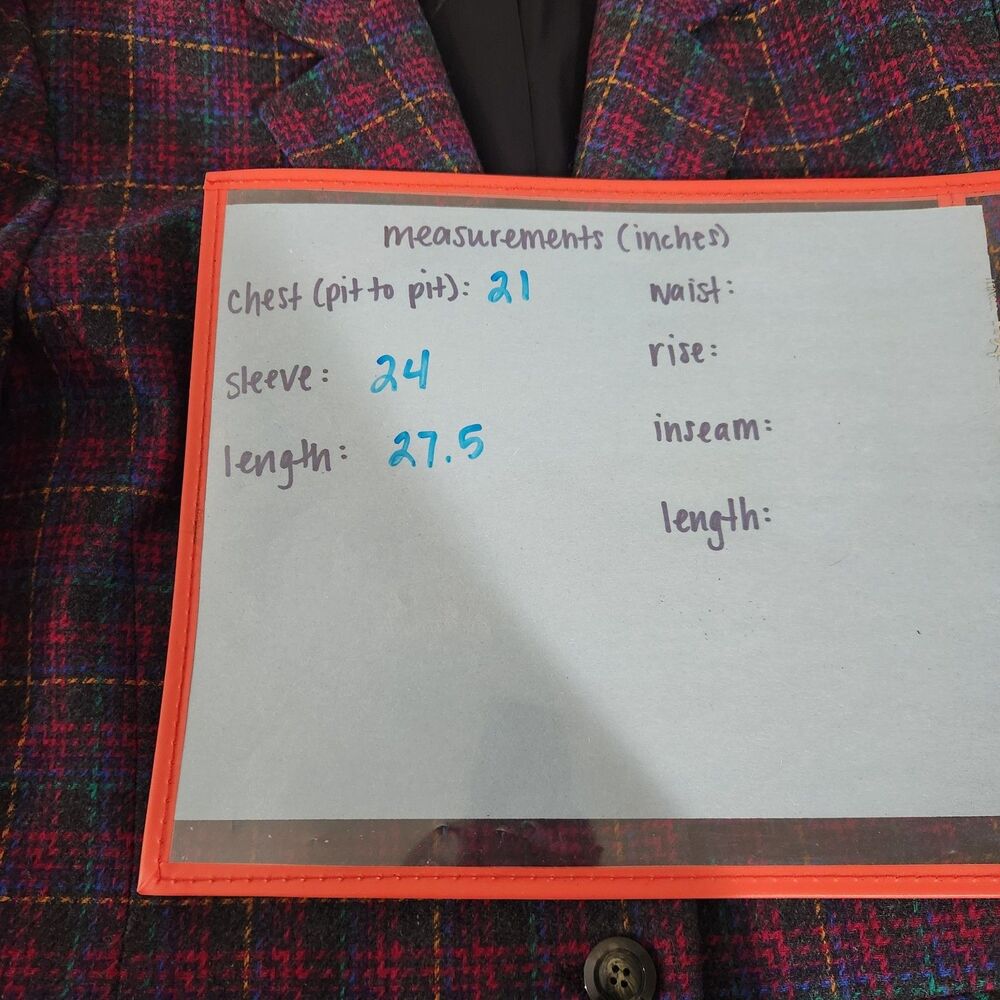 measurements (inches)
chest (pit to pit): 21
sleeve: 24
length: 27.5
waist:
rise:
inseam:
length: